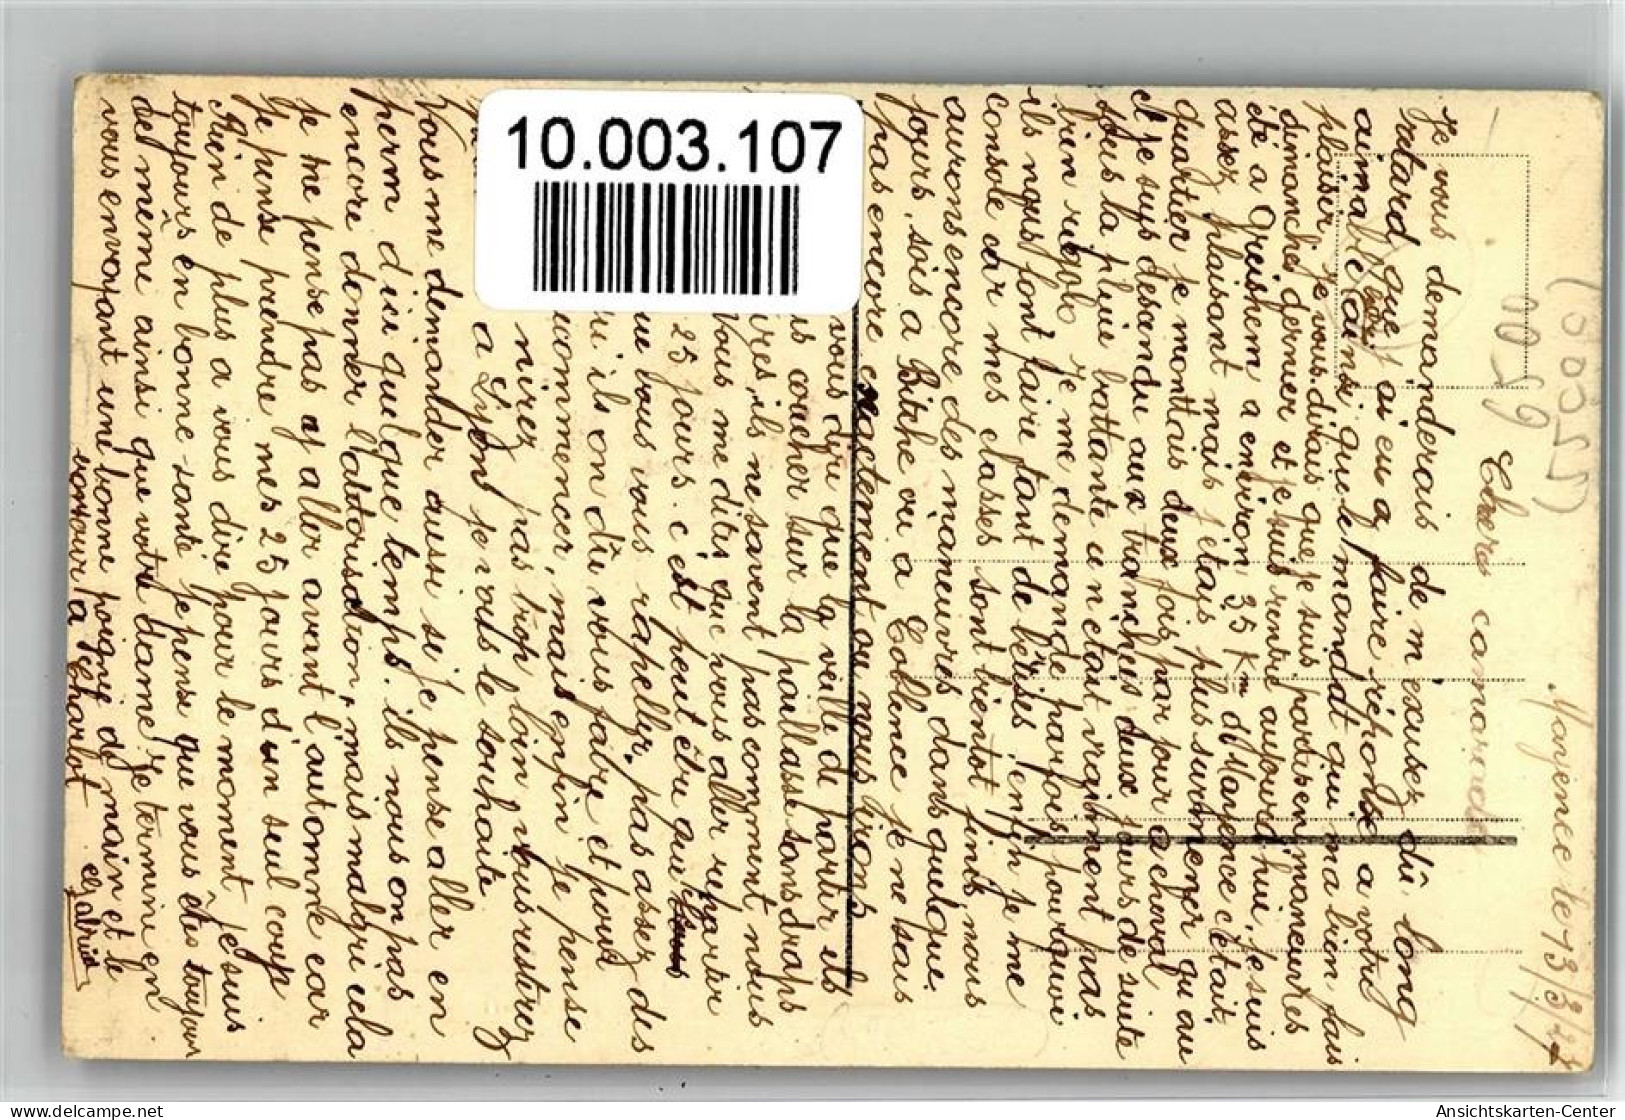 Mayence le 13/3/22
Chers camarade
Je vous demanderais de m'excusez dû long
retard que j'ai eu a faire réponse a votre
aimable carte ainsi que le mandat qui ma bien fais
plaisir, je vous dirais que je suis partis en manoeuvres
dimanches dernier et je suis rentré aujourd'hui, je suis
été a Greishem a environ 35 Km de Mayence c'était
assez plaisant mais j'étais plus surmener qu'au
quartier je montais deux fois par jour a cheval
et je suis descendu aux tranchées deux jours de suite
sous la pluie battante u n'était vraiment pas
bien rigolo je me demande parfois pourquoi
ils nous font faire tant de bêtises, enfin je me
console car mes classes sont bientot finis, nous
aurons encore des manoeuvres dans quelque
jours, sois a Bitche ou a Coblence je ne sais
pas encore exactement ou nous irons
vous dire que la veille de partir ils
s coucher sur la paillasse sans draps
ires, ils ne savent pas comment nous
Vous me dites que vous aller repartir
25 jours. c est peut être au
ue vous vous rapeller pas assez des
u ils on dû vous faire et pour
commencer, mais enfin je pense
nirez pas trop loin, vous resterez
a Lyon je vous le souhaite
Vous me demander aussi si je pense aller en
perm d'ici quelque temps. ils nous on pas
encore donner l'autorisation, mais malgré cela
je ne pense pas y aller avant l'automne car
je pense prendre mes 25 jours d'un seul coup
Rien de plus a vous dire pour le moment, je suis
toujours en bonne santé je pense que vous êtes toujour
de même ainsi que votre dame. Je termine en
vous envoyant une bonne poigné de main et le
bonjour a Charlot
Gabriel
10.003.107
Ansichtskarten-Center